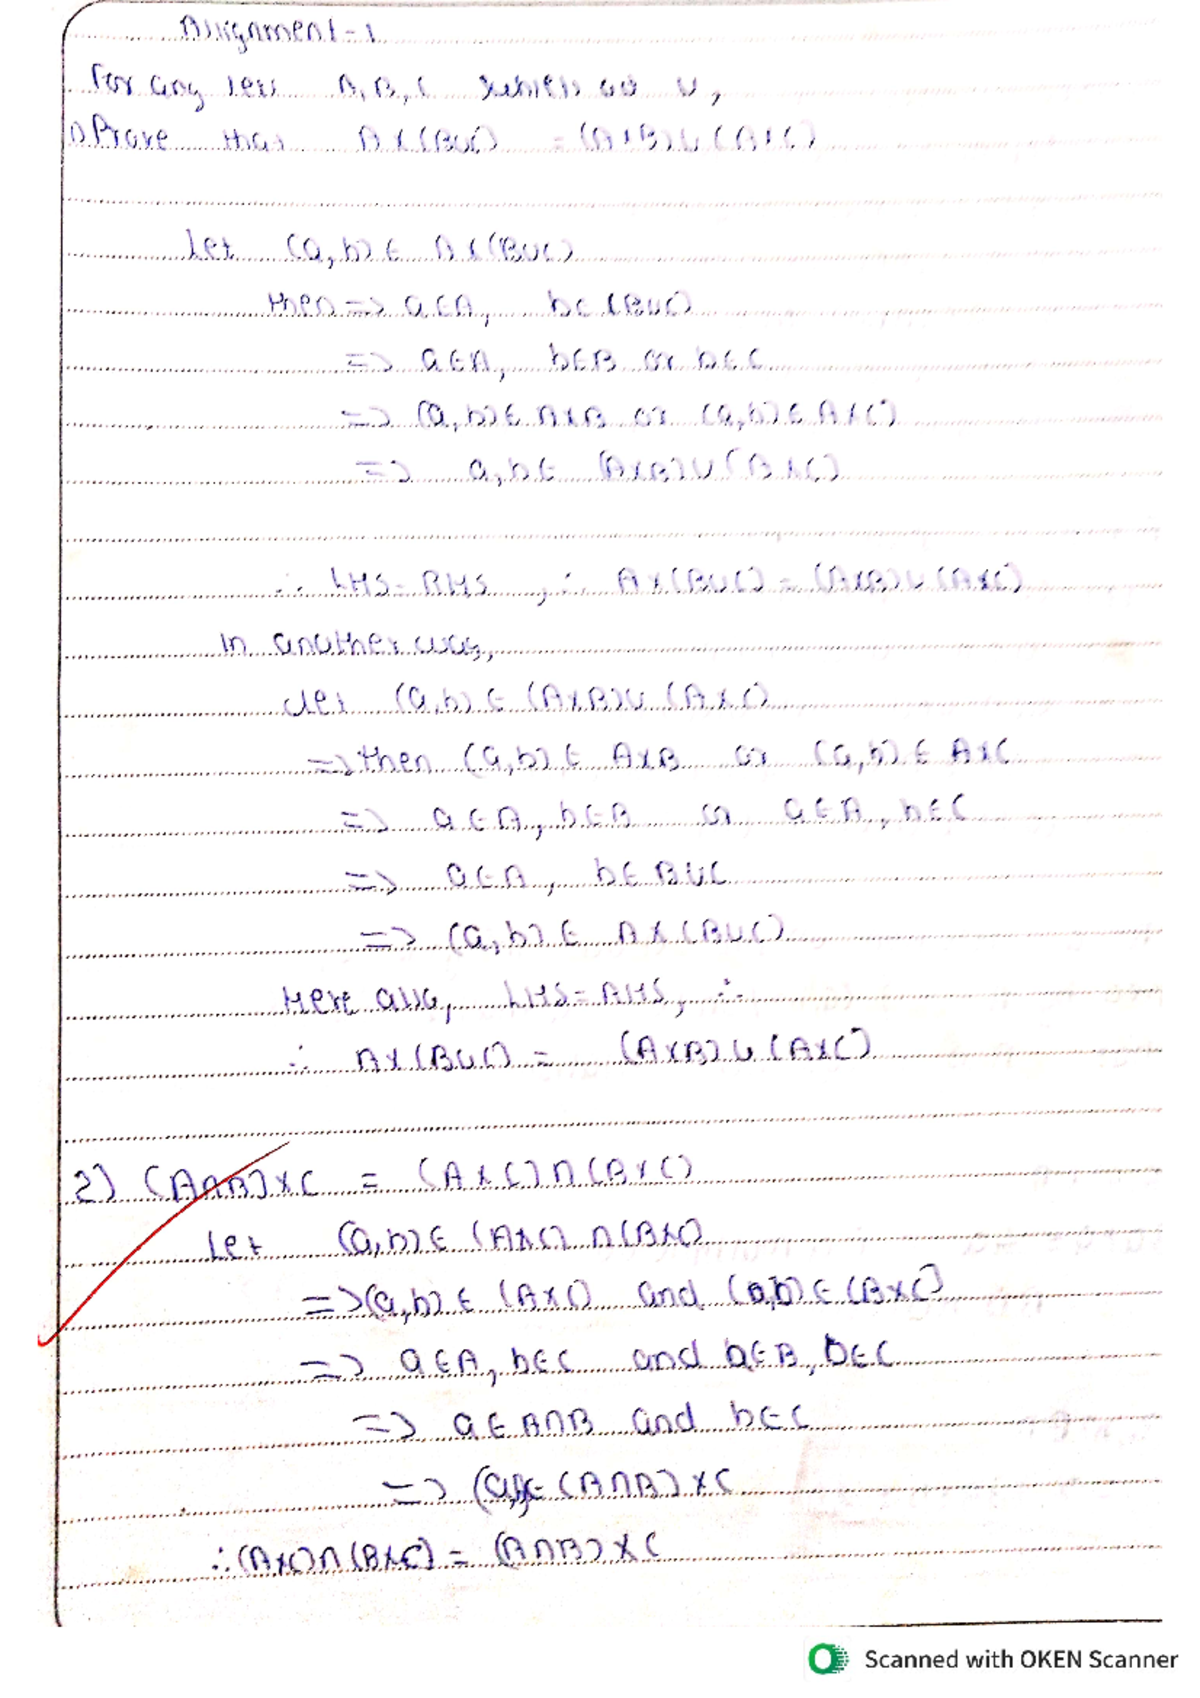 Assignment-1
For any sets A, B, C
1) Prove that A×(B∪C) = (A×B)∪(A×C)
Let (a,b)∈ A×(B∪C)
then => a∈A, b∈(B∪C)
=> a∈A, b∈B or b∈C
=> (a,b)∈ A×B or (a,b)∈A×C)
=> a,b∈ (A×B)∪(B×C)
∴ LHS=RHS, ∴ A×(B∪C) = (A×B)∪(A×C)
In another way,
Let (a,b)∈(A×B)∪(A×C)
=> then (a,b)∈ A×B or (a,b)∈A×C
=> a∈A, b∈B or a∈A, b∈C
=> a∈A, b∈B∪C
=> (a,b)∈ A×(B∪C)
Here also, LHS=RHS, ∴
∴ A×(B∪C) = (A×B)∪(A×C)
2) (A∩B)×C = (A×C)∩(B×C)
Let (a,b)∈(A×C)∩(B×C)
=>(a,b)∈(A×C) and (a,b)∈(B×C)
=> a∈A, b∈C and a∈B, b∈C
=> a∈A∩B and b∈C
=> (a,b)∈(A∩B)×C
∴(A×C)∩(B×C) = (A∩B)×C
Scanned with OKEN Scanner